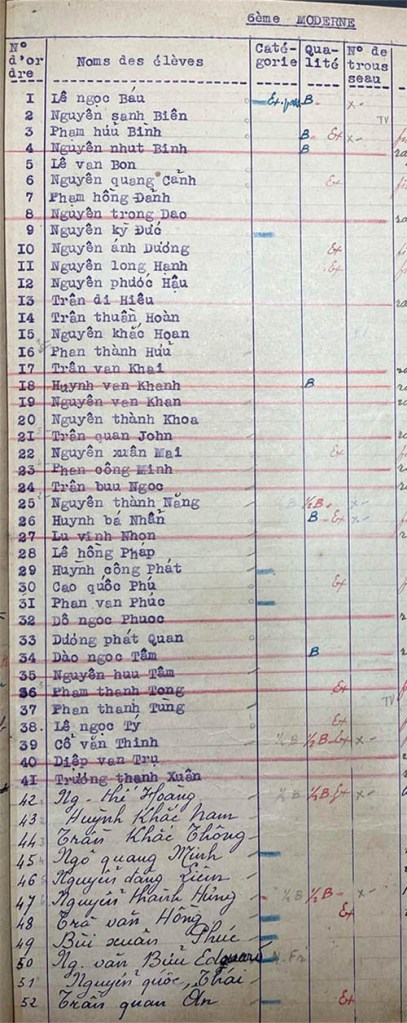 6ème MODERNE
N° d'or dre Noms des élèves Caté- gorie Qua- lité N° de trous seau
1 Lê ngọc Báu Ex. B- x-
2 Nguyễn sanh Biên TV
3 Phạm hữu Bình B- Ex x-
4 Nguyễn nhựt Bình B
5 Lê van Bon
6 Nguyễn quang Cảnh Ex
7 Phạm hồng Đảnh
8 Nguyễn trong Dao
9 Nguyễn kỳ Đức
10 Nguyễn ánh Dương Ex
11 Nguyễn long Hạnh Ex
12 Nguyễn phước Hậu
13 Trần di Hiếu
14 Trần thuần Hoàn
15 Nguyễn khắc Hoan
16 Phan thành Hữu
17 Trần van Khai
18 Huynh van Khanh B
19 Nguyễn van Khan
20 Nguyễn thành Khoa
21 Trần quan John
22 Nguyễn xuân Mai Ex
23 Phan công Minh
24 Trần buu Ngọc
25 Nguyễn thành Năng ½ B ½ B- x-
26 Huynh bá Nhẫn B- Ex x-
27 Lu vinh Nhon
28 Lê hồng Pháp
29 Huỳnh công Phát
30 Cao quốc Phú Ex
31 Phan van Phúc
32 Dô ngoc Phuoc
33 Dương phát Quan
34 Dào ngọc Tâm B
35 Nguyễn huu Tâm
36 Pham thanh Tong Ex
37 Phan thanh Tùng TV
38. Lê ngọc Tý Ex
39 Cổ văn Thinh ½ B ½ B- Ex x-
40 Diệp van Trụ
41 Trương thanh Xuân
42 Ng- thế Hoàng ½ B ½ B Ex x-
43 Huỳnh Khắc Nam
44 Trần Khắc Thông
45 Ngô quang Minh
46 Nguyễn đăng Liêm
47 Nguyễn thành Hưng ½ B ½ B- x-
48 Trần văn Hồng Ex
49 Bùi xuân Phúc
50 Ng. văn Bửu Edouard N. Fr
51 Nguyễn quốc Thái
52 Trần quan Ấn Ex